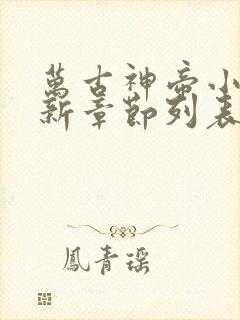 萬古神帝小
新章節列表
鳳青瑤